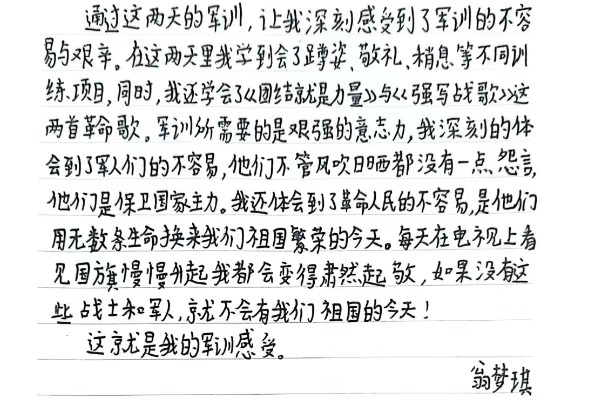 通过这两天的军训，让我深刻感受到了军训的不容
易与艰辛。在这两天里我学到会了蹲姿、敬礼、稍息等不同训
练项目，同时，我还学会了《团结就是力量》与《强写战歌》这
两首革命歌。军训所需要的是艰强的意志力，我深刻的体
会到了军人们的不容易，他们不管风吹日晒都没有一点怨言，
他们是保卫国家主力。我还体会到了革命人民的不容易，是他们
用无数条生命换来我们祖国繁荣的今天。每天在电视上看
见国旗慢慢升起我都会变得肃然起敬，如果没有这
些战士和军人，京尤不会有我们祖国的今天！
这就是我的军训感受。
翁梦琪